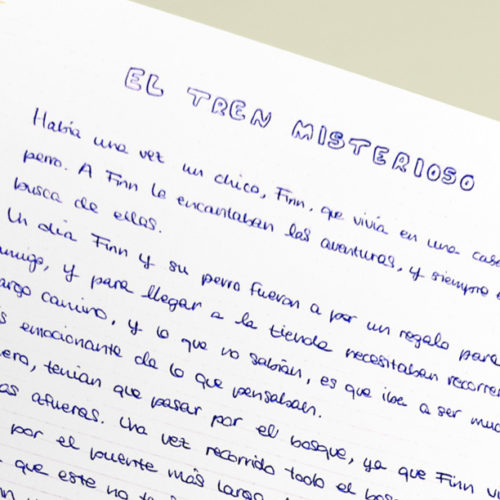 EL TREN MISTERIOSO
Había una vez un chico, Finn, que vivía en una casa
perro. A Finn le encantaban las aventuras, y siempre
busca de ellas.
Un día Finn y su perro fueron a por un regalo para
amigo, y para llegar a la tienda necesitaban recorrer
largo camino, y lo que no sabían, es que iba a ser much
s emocionante de lo que pensaban.
ero, tenían que pasar por el bosque, ya que Finn v
as afueras. Una vez recorrido todo el bos
por el puente más largo
que este no